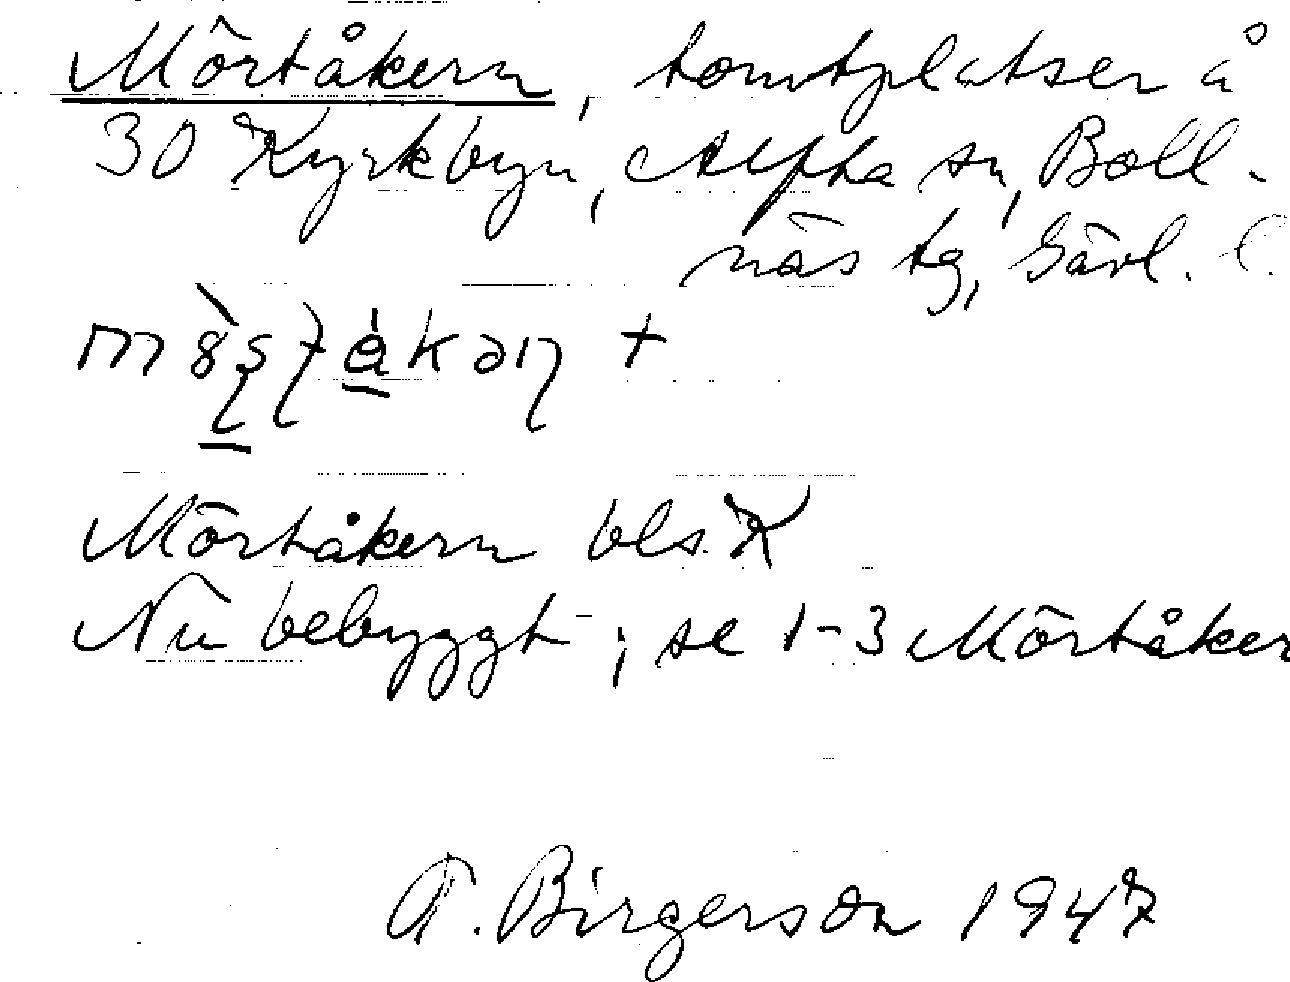 Mörtåkern, tomtplatser å
30 Kyrkbyn, Alfta sn, Boll-
näs tg, Gävl. l.
Mörtåkern bls. K
Nu bebyggt; se 1-3 Mörtåker
Birgerson 1947